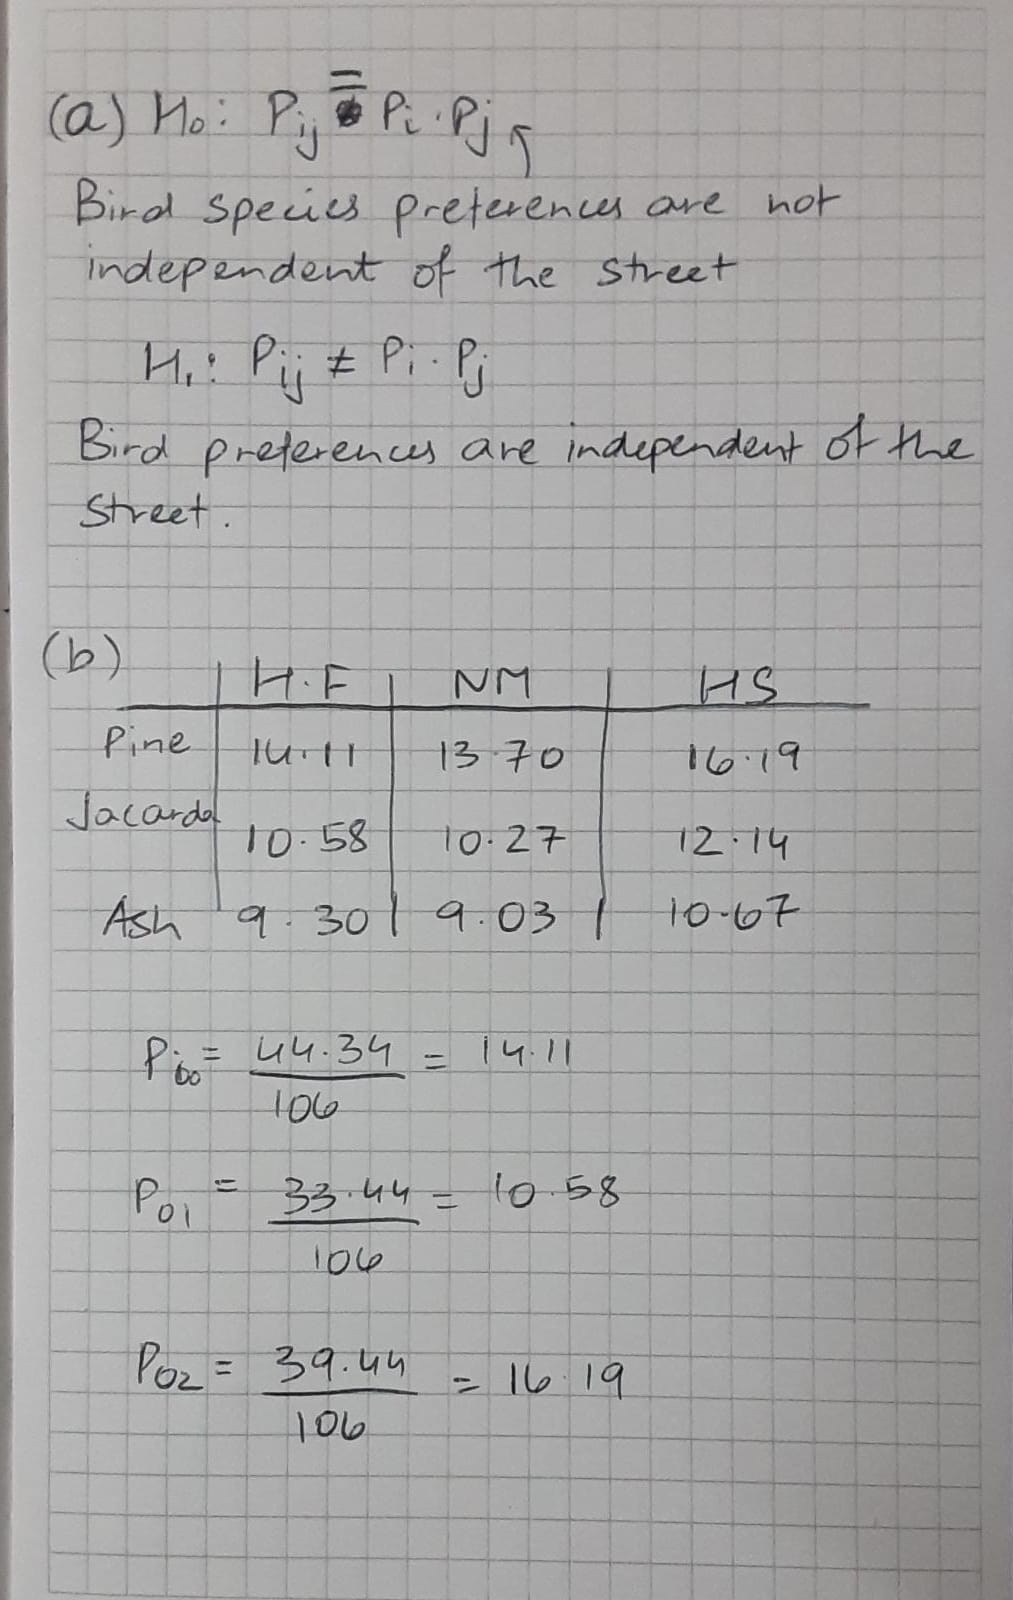 (a) H₀: Pij = Pi · Pj
Bird species preferences are not
independent of the street
H₁: Pij ≠ Pi · Pj
Bird preferences are independent of the
Street.
(b)
H.F NM HS
Pine 14.11 13.70 16.19
Jacarda 10.58 10.27 12.14
Ash 9.30 9.03 10.67
= 44.34 / 106 = 14.11
P01 = 33.44 / 106 = 10.58
P02 = 39.44 / 106 = 16.19